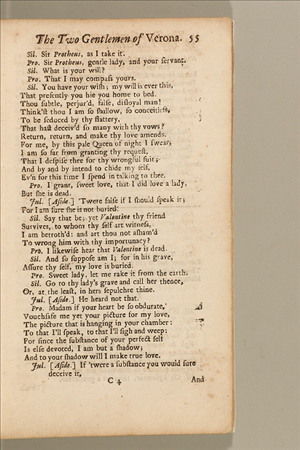 The Two Gentlemen of Verona. 55
Sil. Sir Protheus, as I take it.
Pro. Sir Protheus, gentle lady, and your servant.
Sil. What is your will?
Pro. That I may compass yours.
Sil. You have your wish; my will is ever this,
That presently you hie you home to bed.
Thou subtle, perjur'd, false, disloyal man!
Think'st thou I am so shallow, so conceitless,
To be seduced by thy flattery,
That hast deceiv'd so many with thy vows?
Return, return, and make thy love amends:
For me, by this pale Queen of night I swear,
I am so far from granting thy request,
That I despise thee for thy wrongful suit;
And by and by intend to chide my self,
Ev'n for this time I spend in talking to thee.
Pro. I grant, sweet love, that I did love a lady,
But she is dead.
Jul. [Aside.] 'Twere false if I should speak it;
For I am sure she is not buried:
Sil. Say that be; yet Valentine thy friend
Survives, to whom thy self art witness,
I am betroth'd: and art thou not asham'd
To wrong him with thy importunacy?
Pro. I likewise hear that Valentine is dead.
Sil. And so suppose am I; for in his grave,
Assure thy self, my love is buried.
Pro. Sweet lady, let me rake it from the earth.
Sil. Go to thy lady's grave and call her thence,
Or, at the least, in hers sepulchre thine.
Jul. [Aside.] He heard not that.
Pro. Madam if your heart be so obdurate,
Vouchsafe me yet your picture for my love,
The picture that is hanging in your chamber:
To that I'll speak, to that I'll sigh and weep:
For since the substance of your perfect self
Is else devoted, I am but a shadow;
And to your shadow will I make true love.
Jul. [Aside.] If 'twere a substance you would sure
deceive it,
C 4 And